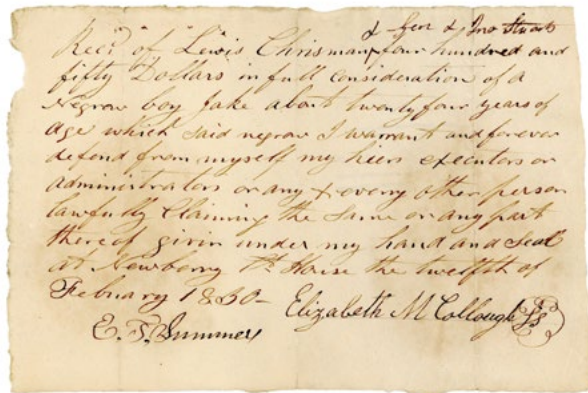 & Geo & Jno Stuart
Recd of Lewis Chrisman four hundred and
fifty Dollars in full consideration of a
Negrow boy Jake about twenty four years of
age which said negrow I warrant and forever
defend from myself my hiers executors or
administrators or any & every other person
lawfully claiming the same or any part
thereof givin under my hand and seal
at Newberry Ct House the twelfth of
Febuary 1830-
Elizabeth McCollough Ls
E. F. Summers